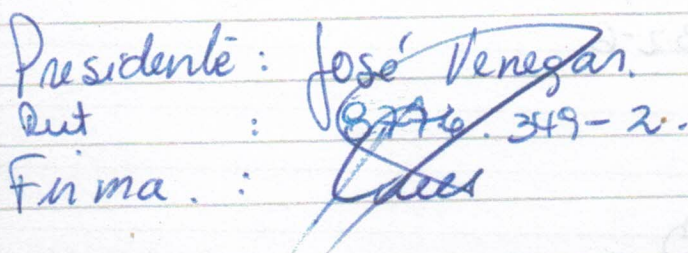 Presidente: José Venegas.
Rut : 8.776.349-2.
Firma. :